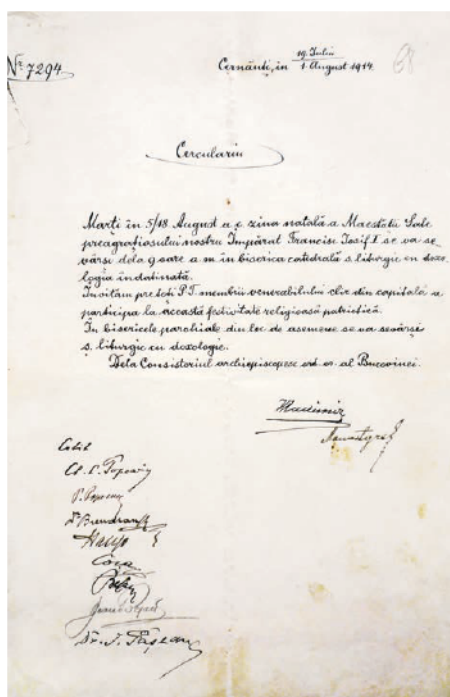 Nr. 7294
Cernăuți, in 19 Iuliu / 1 August 1914
68
Cerculariu
Marți în 5/18 August a.c. ziua natală a Maestății Sale
preagrațiosului nostru Împărat Francisc Iosif I se va să-
vârși dela 9 oare a.m. în biserica catedrală s. liturgie cu doxo-
logia îndatinată.
Invităm pre toți P.T. membrii venerabilului clir din capitală a
participa la această festivitate religioasă patriotică.
În bisericele parohiale din loc de asemene se va săvârși
s. liturgie cu doxologie.
Dela Consistoriul archiepiscopesc ort. or. al Bucovinei.
Vladimir
Cetit
Popovici
Dr.
Dr. I.